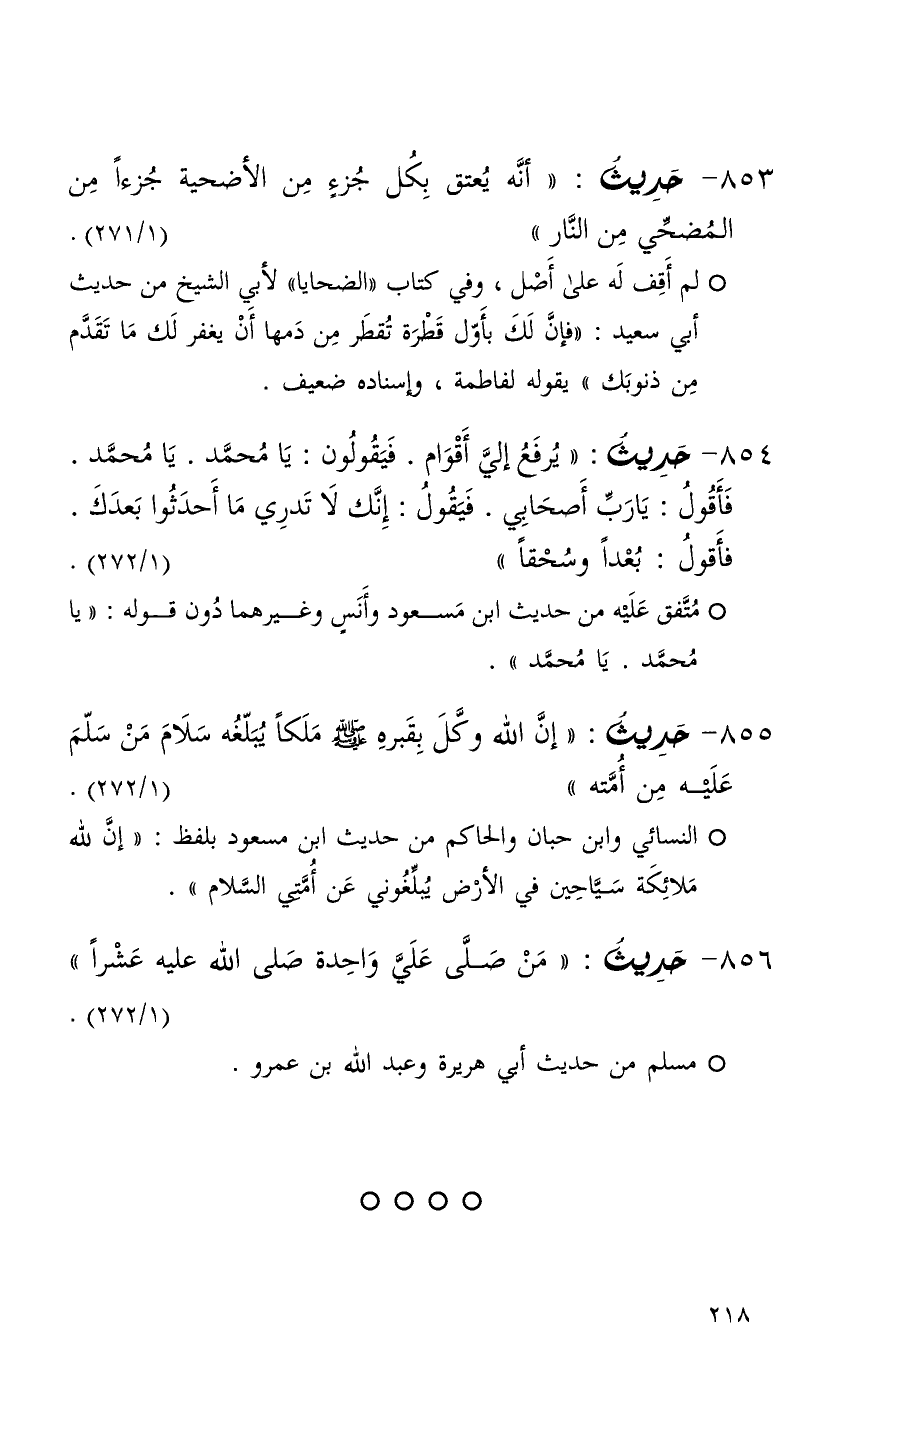 ٨٥٣- حَدِيثُ : « أنَّه يُعتق بِكُل جُزءٍ مِن الأضحية جُزءاً مِن
المُضحِّي مِن النَّار » (٢٧١/١) .
○ لم أَقِف لَه علىٰ أَصْل ، وفي كتاب «الضحايا» لأبي الشيخ من حديث
أبي سعيد : «فإنَّ لَكَ بأَوّل قَطْرَة تُقطَر مِن دَمها أَنْ يغفر لَك مَا تَقَدَّم
مِن ذنوبَك » يقوله لفاطمة ، وإسناده ضعيف .
٨٥٤- حَدِيثُ : « يُرفَعُ إليَّ أَقْوَام . فَيَقُولُون : يَا مُحمَّد . يَا مُحمَّد .
فَأَقُولُ : يَارَبِّ أَصحَابِي . فَيَقُولُ : إِنَّك لَا تَدرِي مَا أَحدَثُوا بَعدَكَ .
فأَقولُ : بُعْداً وسُحْقاً » (٢٧٢/١) .
○ مُتَّفق عَلَيْه من حديث ابن مَسـعود وأَنَسٍ وغـيرهما دُون قـوله : « يا
مُحمَّد . يَا مُحمَّد » .
٨٥٥- حَدِيثُ : « إنَّ الله وكَّلَ بِقَبرهِ ﷺ مَلَكاً يُبَلّغُه سَلَامَ مَنْ سَلّمَ
عَلَيْـه مِن أُمَّته » (٢٧٢/١) .
○ النسائي وابن حبان والحاكم من حديث ابن مسعود بلفظ : « إنَّ لله
مَلائِكَة سَـيَّاحِين في الأرْض يُبلِّغُوني عَن أُمَّتِي السَّلام » .
٨٥٦- حَدِيثُ : « مَنْ صَـلَّى عَلَيَّ وَاحِدة صَلى الله عليه عَشْراً »
(٢٧٢/١) .
○ مسلم من حديث أبي هريرة وعبد الله بن عمرو .
○ ○ ○ ○
٢١٨